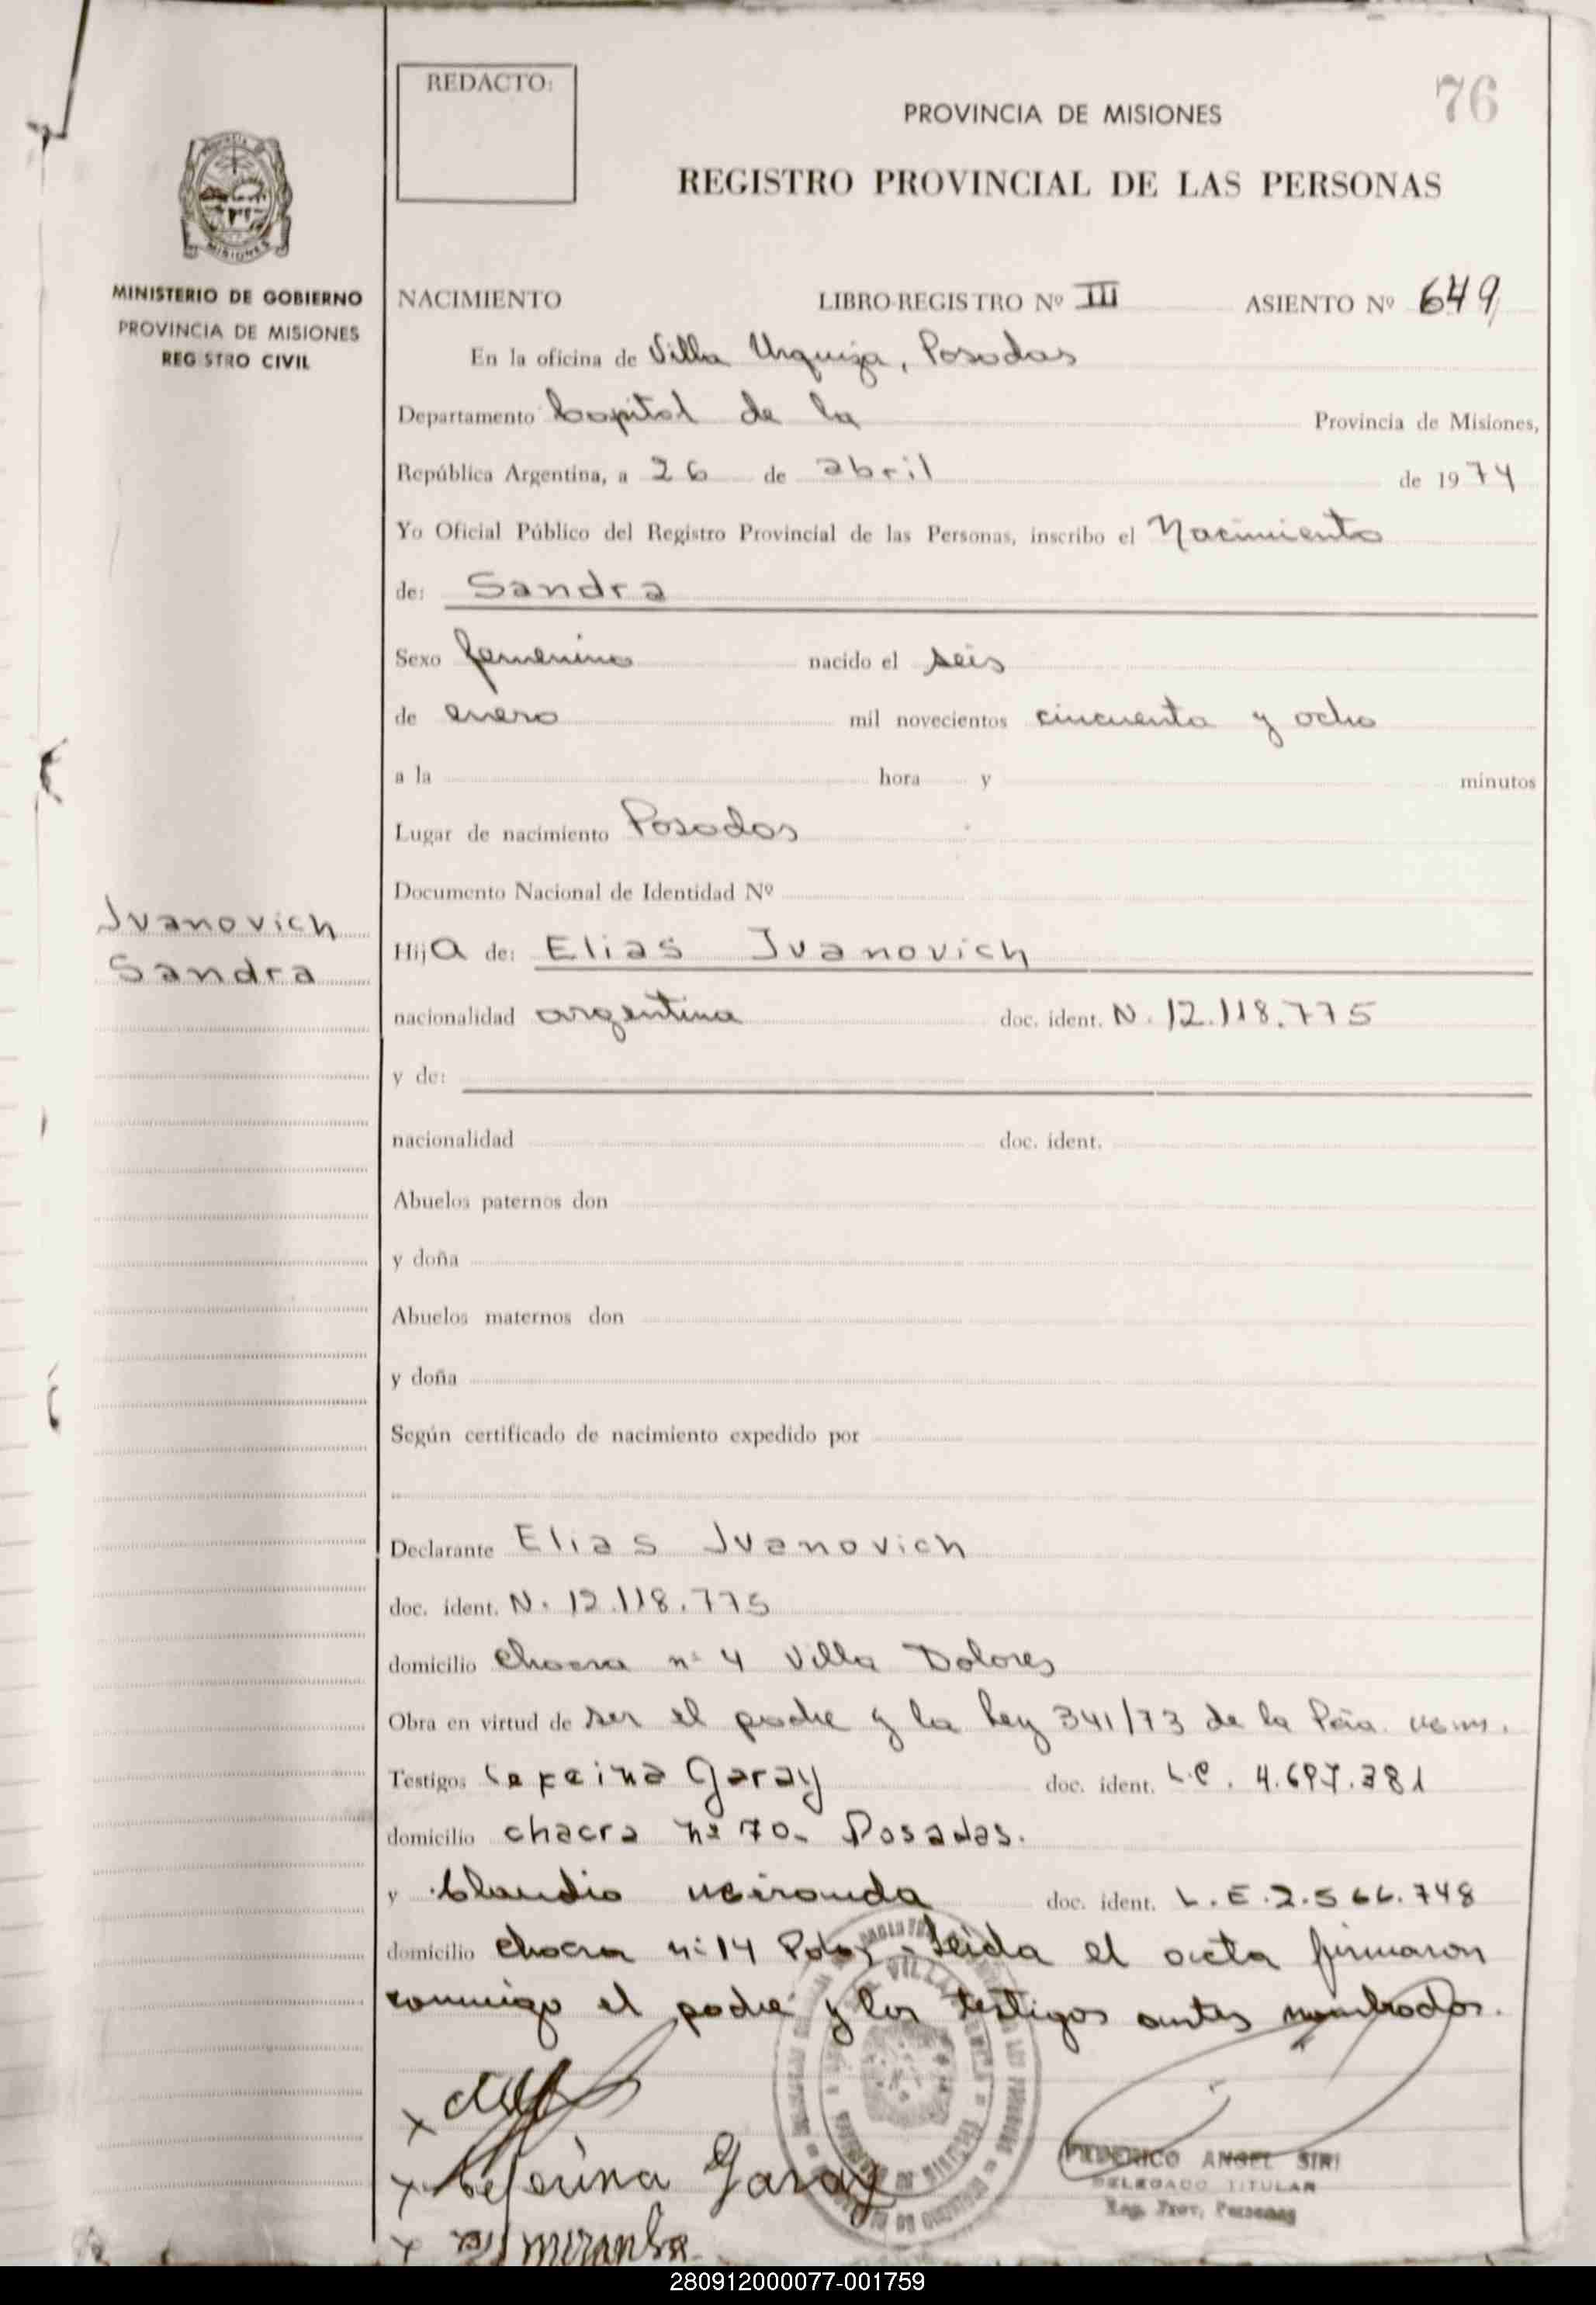 REDACTO:
76
PROVINCIA DE MISIONES
REGISTRO PROVINCIAL DE LAS PERSONAS
MISIONES
MINISTERIO DE GOBIERNO
PROVINCIA DE MISIONES
REGISTRO CIVIL
NACIMIENTO LIBRO-REGISTRO Nº III ASIENTO Nº 649
En la oficina de Villa Urquiza, Posadas
Departamento Capital de la Provincia de Misiones,
República Argentina, a 26 de abril de 1974
Yo Oficial Público del Registro Provincial de las Personas, inscribo el Nacimiento
de: Sandra
Sexo femenino nacido el seis
de enero mil novecientos cincuenta y ocho
a la hora y minutos
Lugar de nacimiento Posadas
Documento Nacional de Identidad Nº
Ivanovich
Sandra
Hija de: Elias Ivanovich
nacionalidad argentina doc. ident. N. 12.118.775
y de:
nacionalidad doc. ident.
Abuelos paternos don
y doña
Abuelos maternos don
y doña
Según certificado de nacimiento expedido por
Declarante Elias Ivanovich
doc. ident. N. 12.118.775
domicilio chacra nº 4 Villa Dolores
Obra en virtud de ser el padre y la Ley 341/73 de la Pcia.
Testigos Garay doc. ident. L.C. 4.697.381
domicilio chacra nº 70. Posadas.
y Claudio Miranda doc. ident. L.E. 2.566.748
domicilio chacra nº 14 Pdas. Leida el acta firmaron
conmigo el padre y los testigos antes nombrados.
x
x Ceferina Garay
x miranda
FEDERICO ANGEL SIRI
DELEGADO TITULAR
Reg. Prov. Personas
280912000077-001759